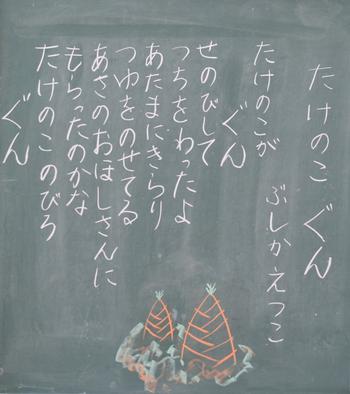 たけのこ ぐん
ぶしかえつこ
たけのこが
ぐん
せのびして
つちをわったよ
あたまにきらり
つゆをのせてる
あさのおほしさんに
もらったのかな
たけのこ のびろ
ぐん